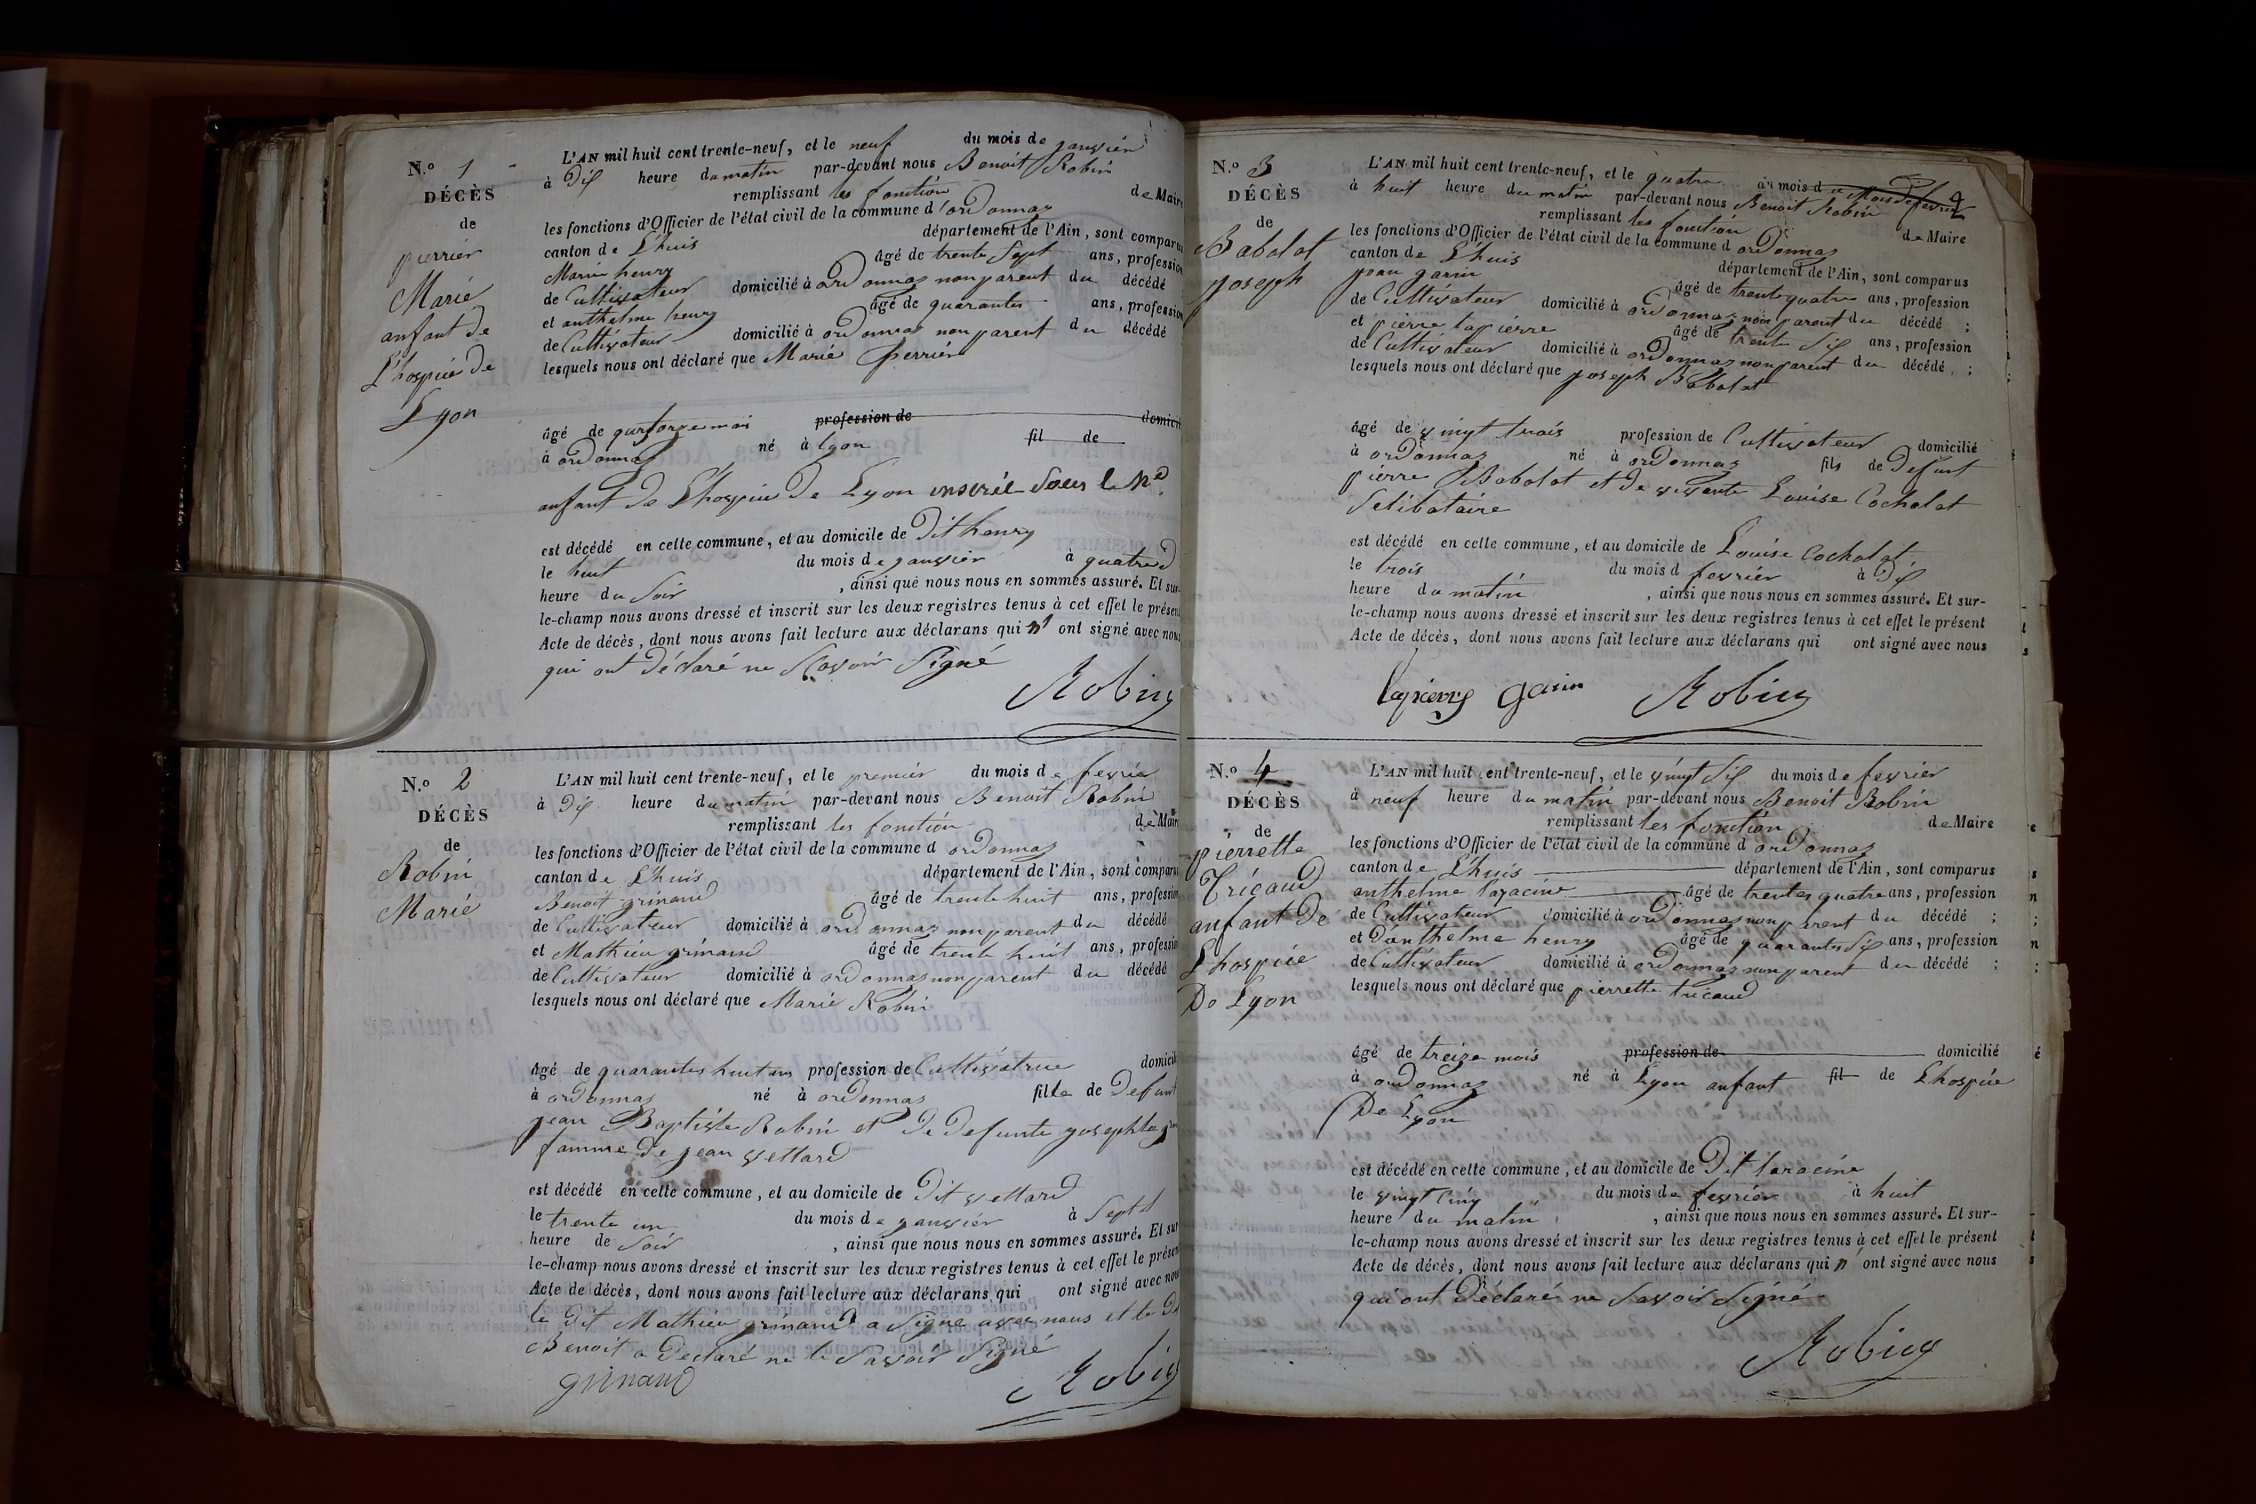 N.º 1
DÉCÈS
de
pierrier
Marie
anfant de
L'hospice de
Lyon
L'AN mil huit cent trente-neuf, et le neuf du mois de janvier
à Dix heure du matin par-devant nous Benoit Robin
remplissant les fonction de Maire
les fonctions d'Officier de l'état civil de la commune d'ordonnaz
canton de L'huis département de l'Ain, sont comparus
henry âgé de trente Sept ans, profession
de Cultivateur domicilié à ordonnaz non parent du décédé
et anthelme henry âgé de quarantes ans, profession
de Cultivateur domicilié à ordonnaz non parent du décédé
lesquels nous ont déclaré que Marie perrier
âgé de mois profession de domicil
à ordonnaz né à lyon fil de
anfant de L'hospice De Lyon inscrit Sous le Nº
est décédé en cette commune, et au domicile de Dit henry
le huit du mois de janvier à quatre
heure du Soir , ainsi que nous nous en sommes assuré. Et sur-
le-champ nous avons dressé et inscrit sur les deux registres tenus à cet effet le présent
Acte de décès, dont nous avons fait lecture aux déclarans qui n' ont signé avec nous
qui ont Déclaré ne Savoir Signé
Robin
N.º 2
DÉCÈS
de
Robin
Marie
L'AN mil huit cent trente-neuf, et le premier du mois de fevrie
à Dix heure du matin par-devant nous Benoit Robin
remplissant les fonction de Maire
les fonctions d'Officier de l'état civil de la commune d ordonnaz
canton de L'huis département de l'Ain, sont comparu
Benoit grinand âgé de trente huit ans, profession
de Cultivateur domicilié à ordonnaz non parent du décédé
et Mathieu grinand âgé de trente huit ans, profession
de Cultivateur domicilié à ordonnaz non parent du décédé
lesquels nous ont déclaré que Marie Robin
âgé de quarantes huit ans profession de Cultivatrice domicil
à ordonnas né à ordonnas fille de Defunt
jean Baptiste Robin et De Defunte
famme De jean vettard
est décédé en cette commune, et au domicile de Dit vettard
le trente un du mois de janvier à Sept
heure de Soir , ainsi que nous nous en sommes assuré. Et sur
le-champ nous avons dressé et inscrit sur les deux registres tenus à cet effet le présen
Acte de décès, dont nous avons fait lecture aux déclarans qui ont signé avec nous
le Dit Mathieu grinand a Signe avec nous et le Dit
Benoit a Déclaré ne le Savoir Signé
grinand Robin
N.º 3
DÉCÈS
de
Babolat
joseph
L'AN mil huit cent trente-neuf, et le quatre du mois d
à huit heure du matin par-devant nous Benoit Robin
remplissant les fonction de Maire
les fonctions d'Officier de l'état civil de la commune d ordonnaz
canton de L'huis département de l'Ain, sont comparus
jean garin âgé de trente quatre ans, profession
de Cultivateur domicilié à ordonnaz non parent du décédé ;
et pierre lapierre âgé de trente Six ans, profession
de Cultivateur domicilié à ordonnaz non parent du décédé, ;
lesquels nous ont déclaré que joseph Babolat
âgé de vingt trois profession de Cultivateur domicilié
à ordonnas né à ordonnaz fils de Defunt
pierre Babolat et De vivante Louise Cochalat
Selibataire
est décédé en cette commune, et au domicile de Louise Cochalat
le trois du mois d fevrier à Dix
heure du matin , ainsi que nous nous en sommes assuré. Et sur-
le-champ nous avons dressé et inscrit sur les deux registres tenus à cet effet le présent
Acte de décès, dont nous avons fait lecture aux déclarans qui ont signé avec nous
lapierre garin Robin
N.º 4
DÉCÈS
de
pierrette
Tricaud
anfant De
Lhospice
De Lyon
L'AN mil huit cent trente-neuf, et le vingt Six du mois de fevrier
à neuf heure du matin par-devant nous Benoit Robin
remplissant les fonction de Maire
les fonctions d'Officier de l'état civil de la commune d'ordonnaz
canton de L'huis département de l'Ain, sont comparus
anthelme laracine âgé de trentes quatre ans, profession
de Cultivateur domicilié à ordonnaz non parent du décédé ;
et D'anthelme henry âgé de quarantes Six ans, profession
de Cultivateur domicilié à ordonnaz non parent du décédé ;
lesquels nous ont déclaré que pierrette tricaud
âgé de treize mois profession de domicilié
à ordonnaz né à Lyon anfant fil de Lhospice
De Lyon
est décédé en cette commune, et au domicile de Dit laracine
le vingt Cinq du mois de fevrier à huit
heure du matin , ainsi que nous nous en sommes assuré. Et sur-
le-champ nous avons dressé et inscrit sur les deux registres tenus à cet effet le présent
Acte de décès, dont nous avons fait lecture aux déclarans qui n' ont signé avec nous
qui ont Déclaré ne Savoir Signé
Robin